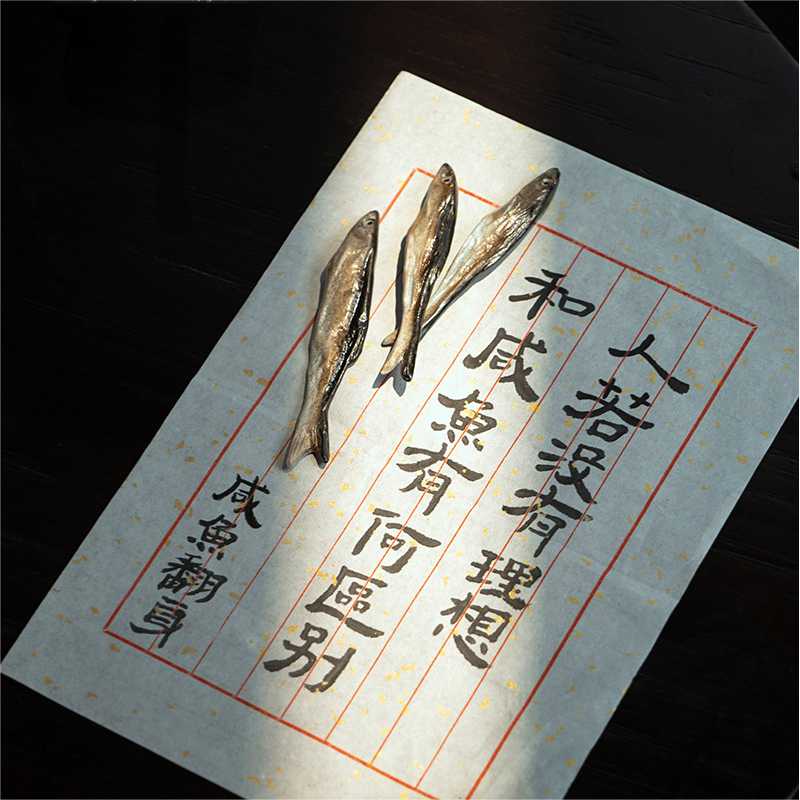 人若没有理想
和咸魚有何區别
咸魚翻身